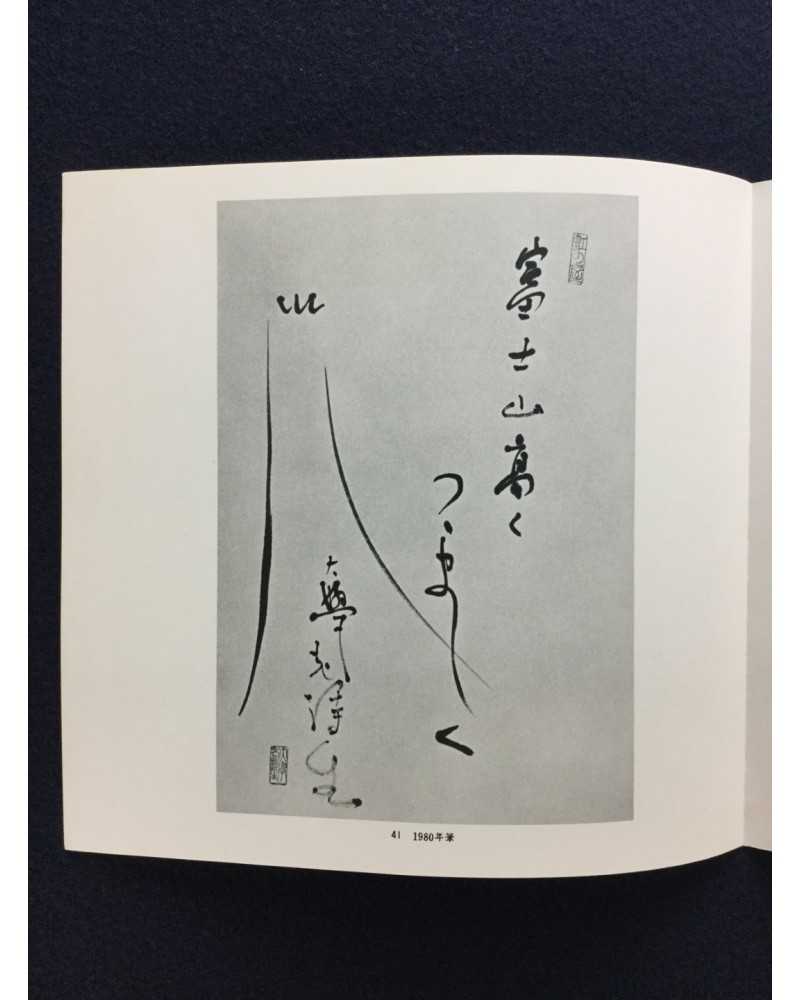 富士山高く
つゝましく
大學老詩生
41 1980年筆